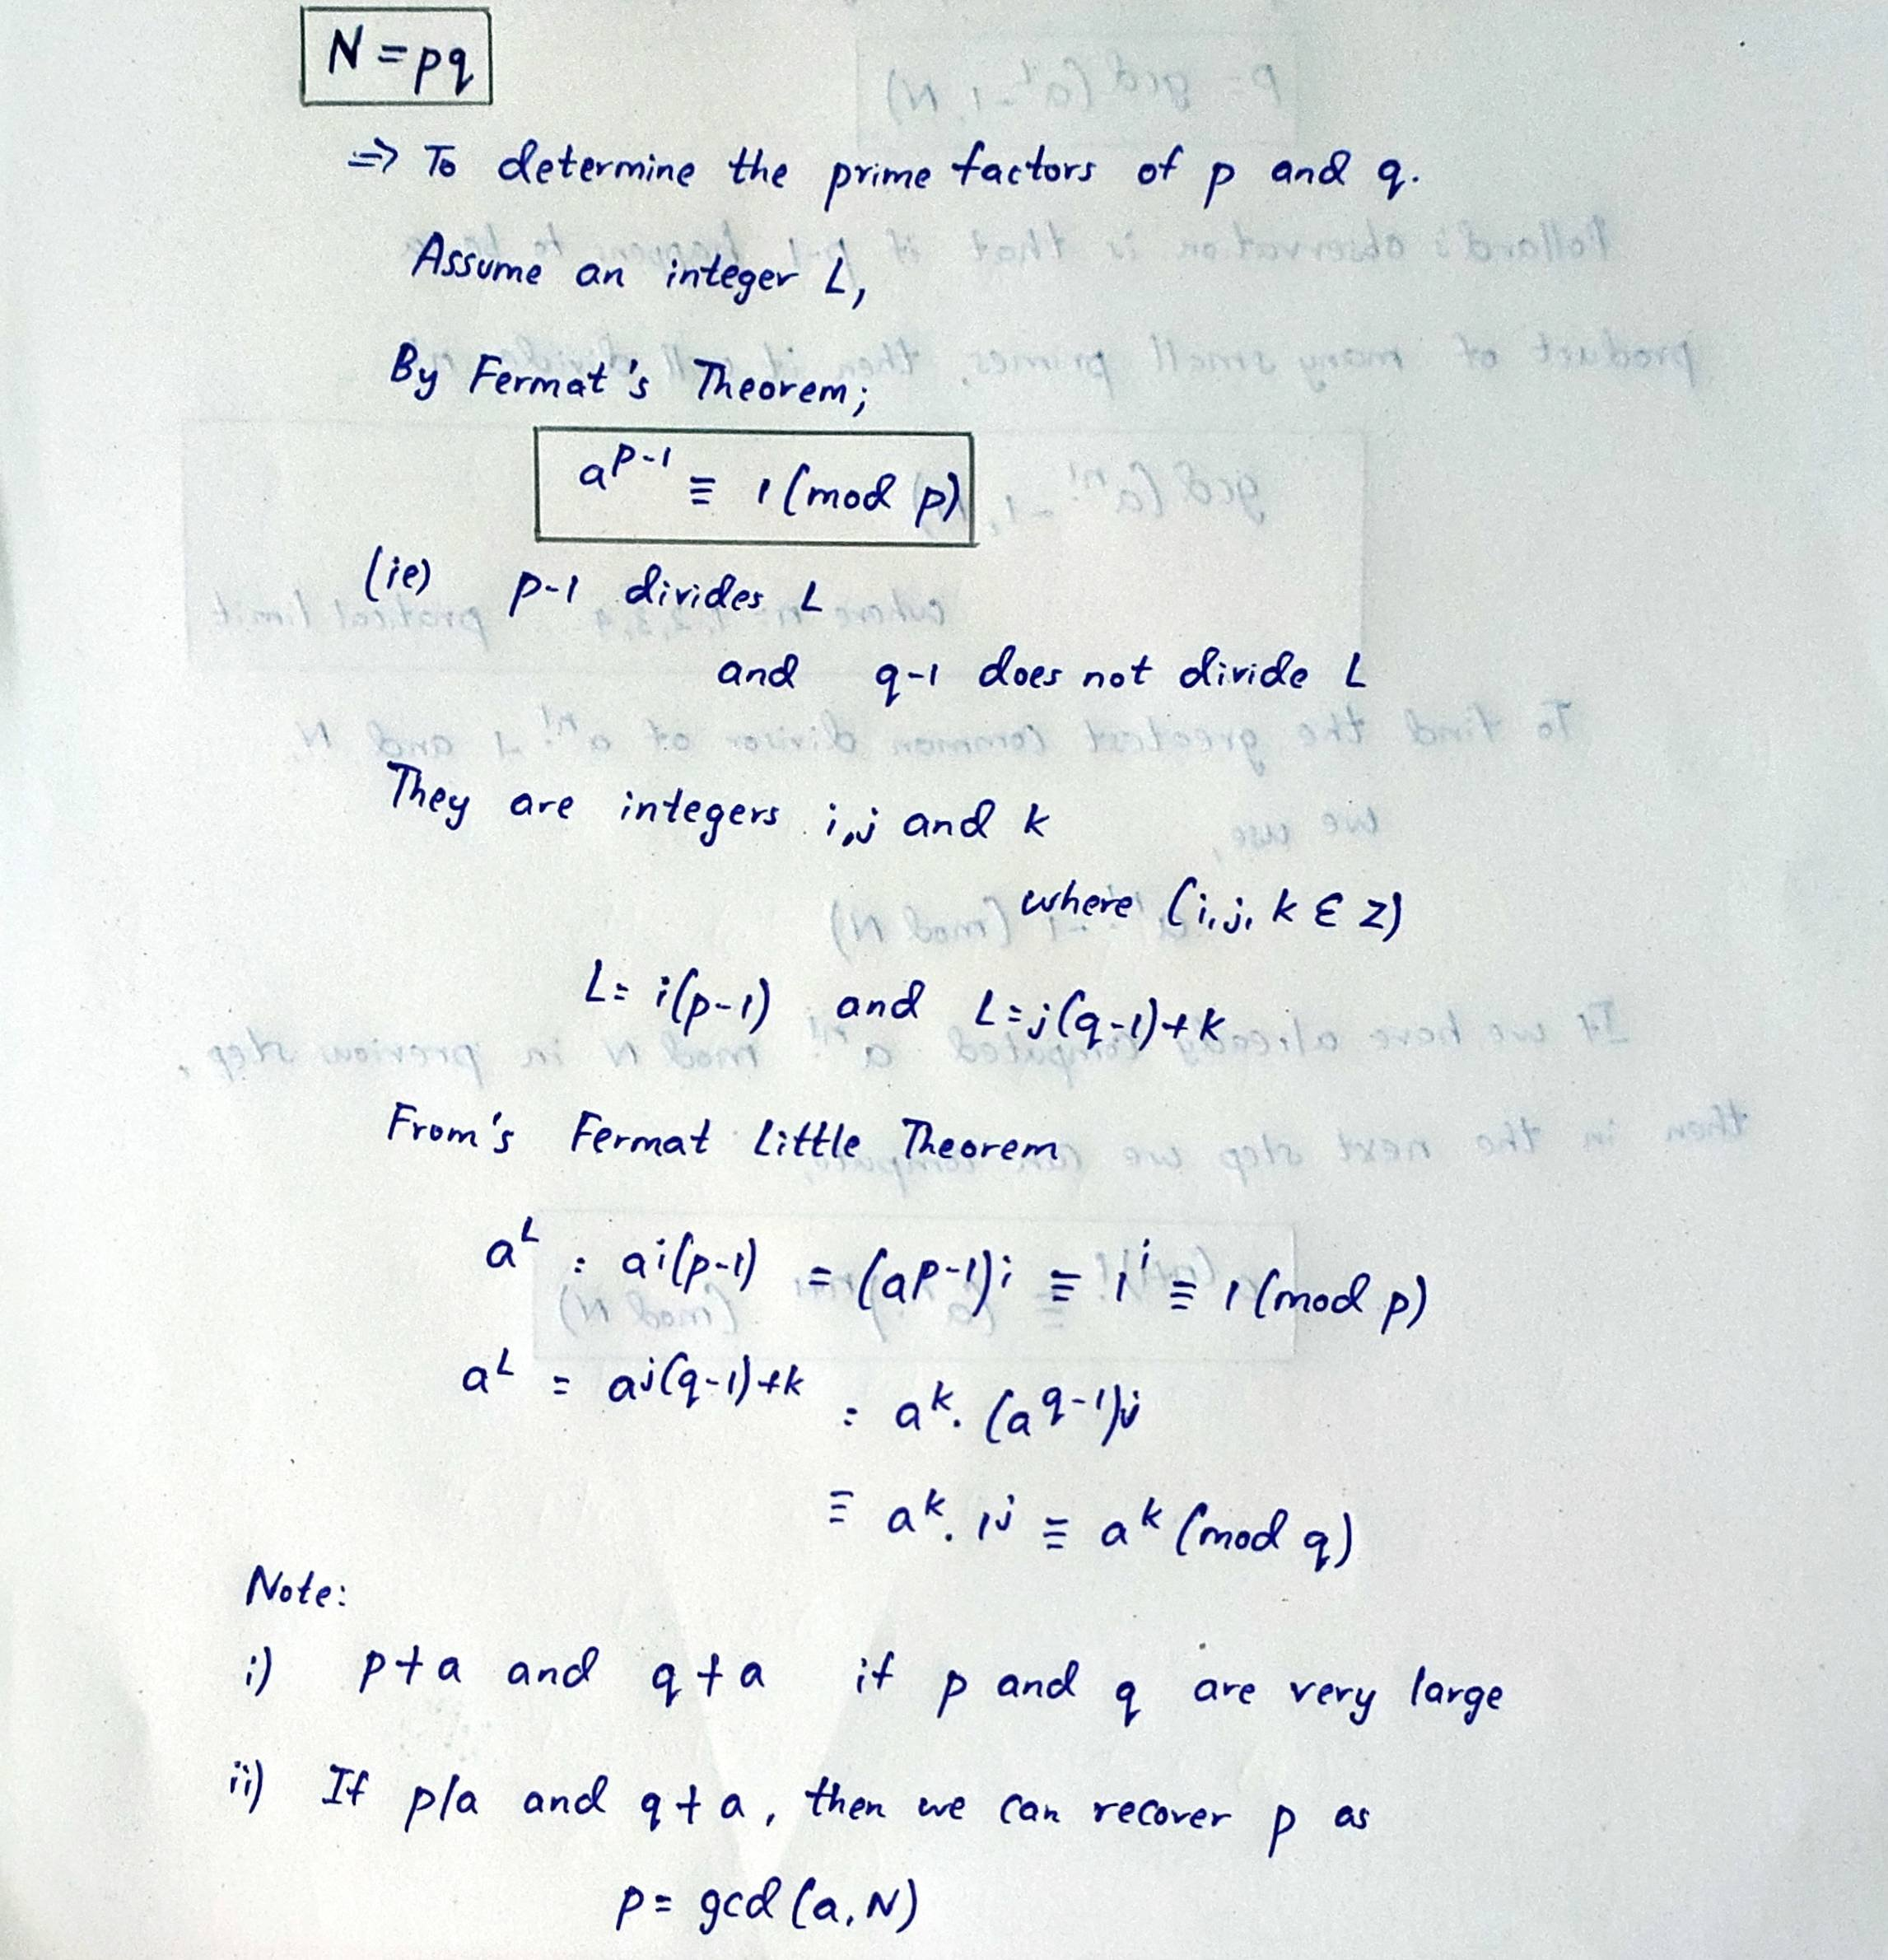 N = pq
⇒ To determine the prime factors of p and q.
Assume an integer L,
By Fermat's Theorem;
a^{p-1} ≡ 1 (mod p)
(ie) p-1 divides L
and q-1 does not divide L
They are integers i,j and k
where (i,j, k ∈ Z)
L = i(p-1) and L = j(q-1)+k
From's Fermat Little Theorem
a^L = a^{i(p-1)} = (a^{p-1})^i ≡ 1^i ≡ 1 (mod p)
a^L = a^{j(q-1)+k} = a^k. (a^{q-1})^j
≡ a^k. 1^j ≡ a^k (mod q)
Note:
i) p∤a and q∤a if p and q are very large
ii) If p/a and q∤a, then we can recover p as
p = gcd (a, N)